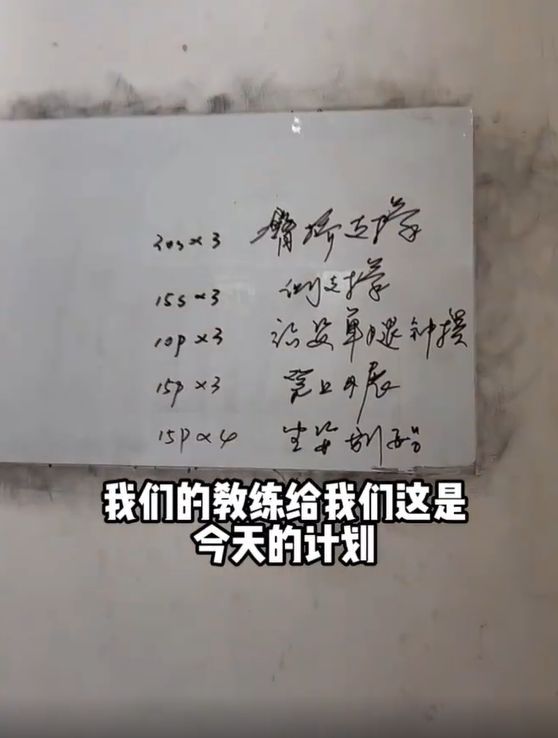 30s×3 臀桥支撑
15s×3 侧支撑
10P×3 单腿钟摆
15P×3 外展
15P×4 坐姿划船
我们的教练给我们这是
今天的计划